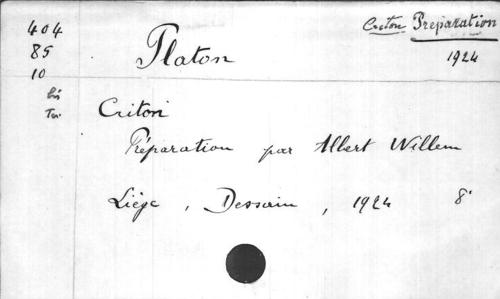 404
85
10
bis
Ter
Criton Preparation
1924
Platon
Criton
Préparation par Albert Willem
Liége, Dessain, 1924 8°